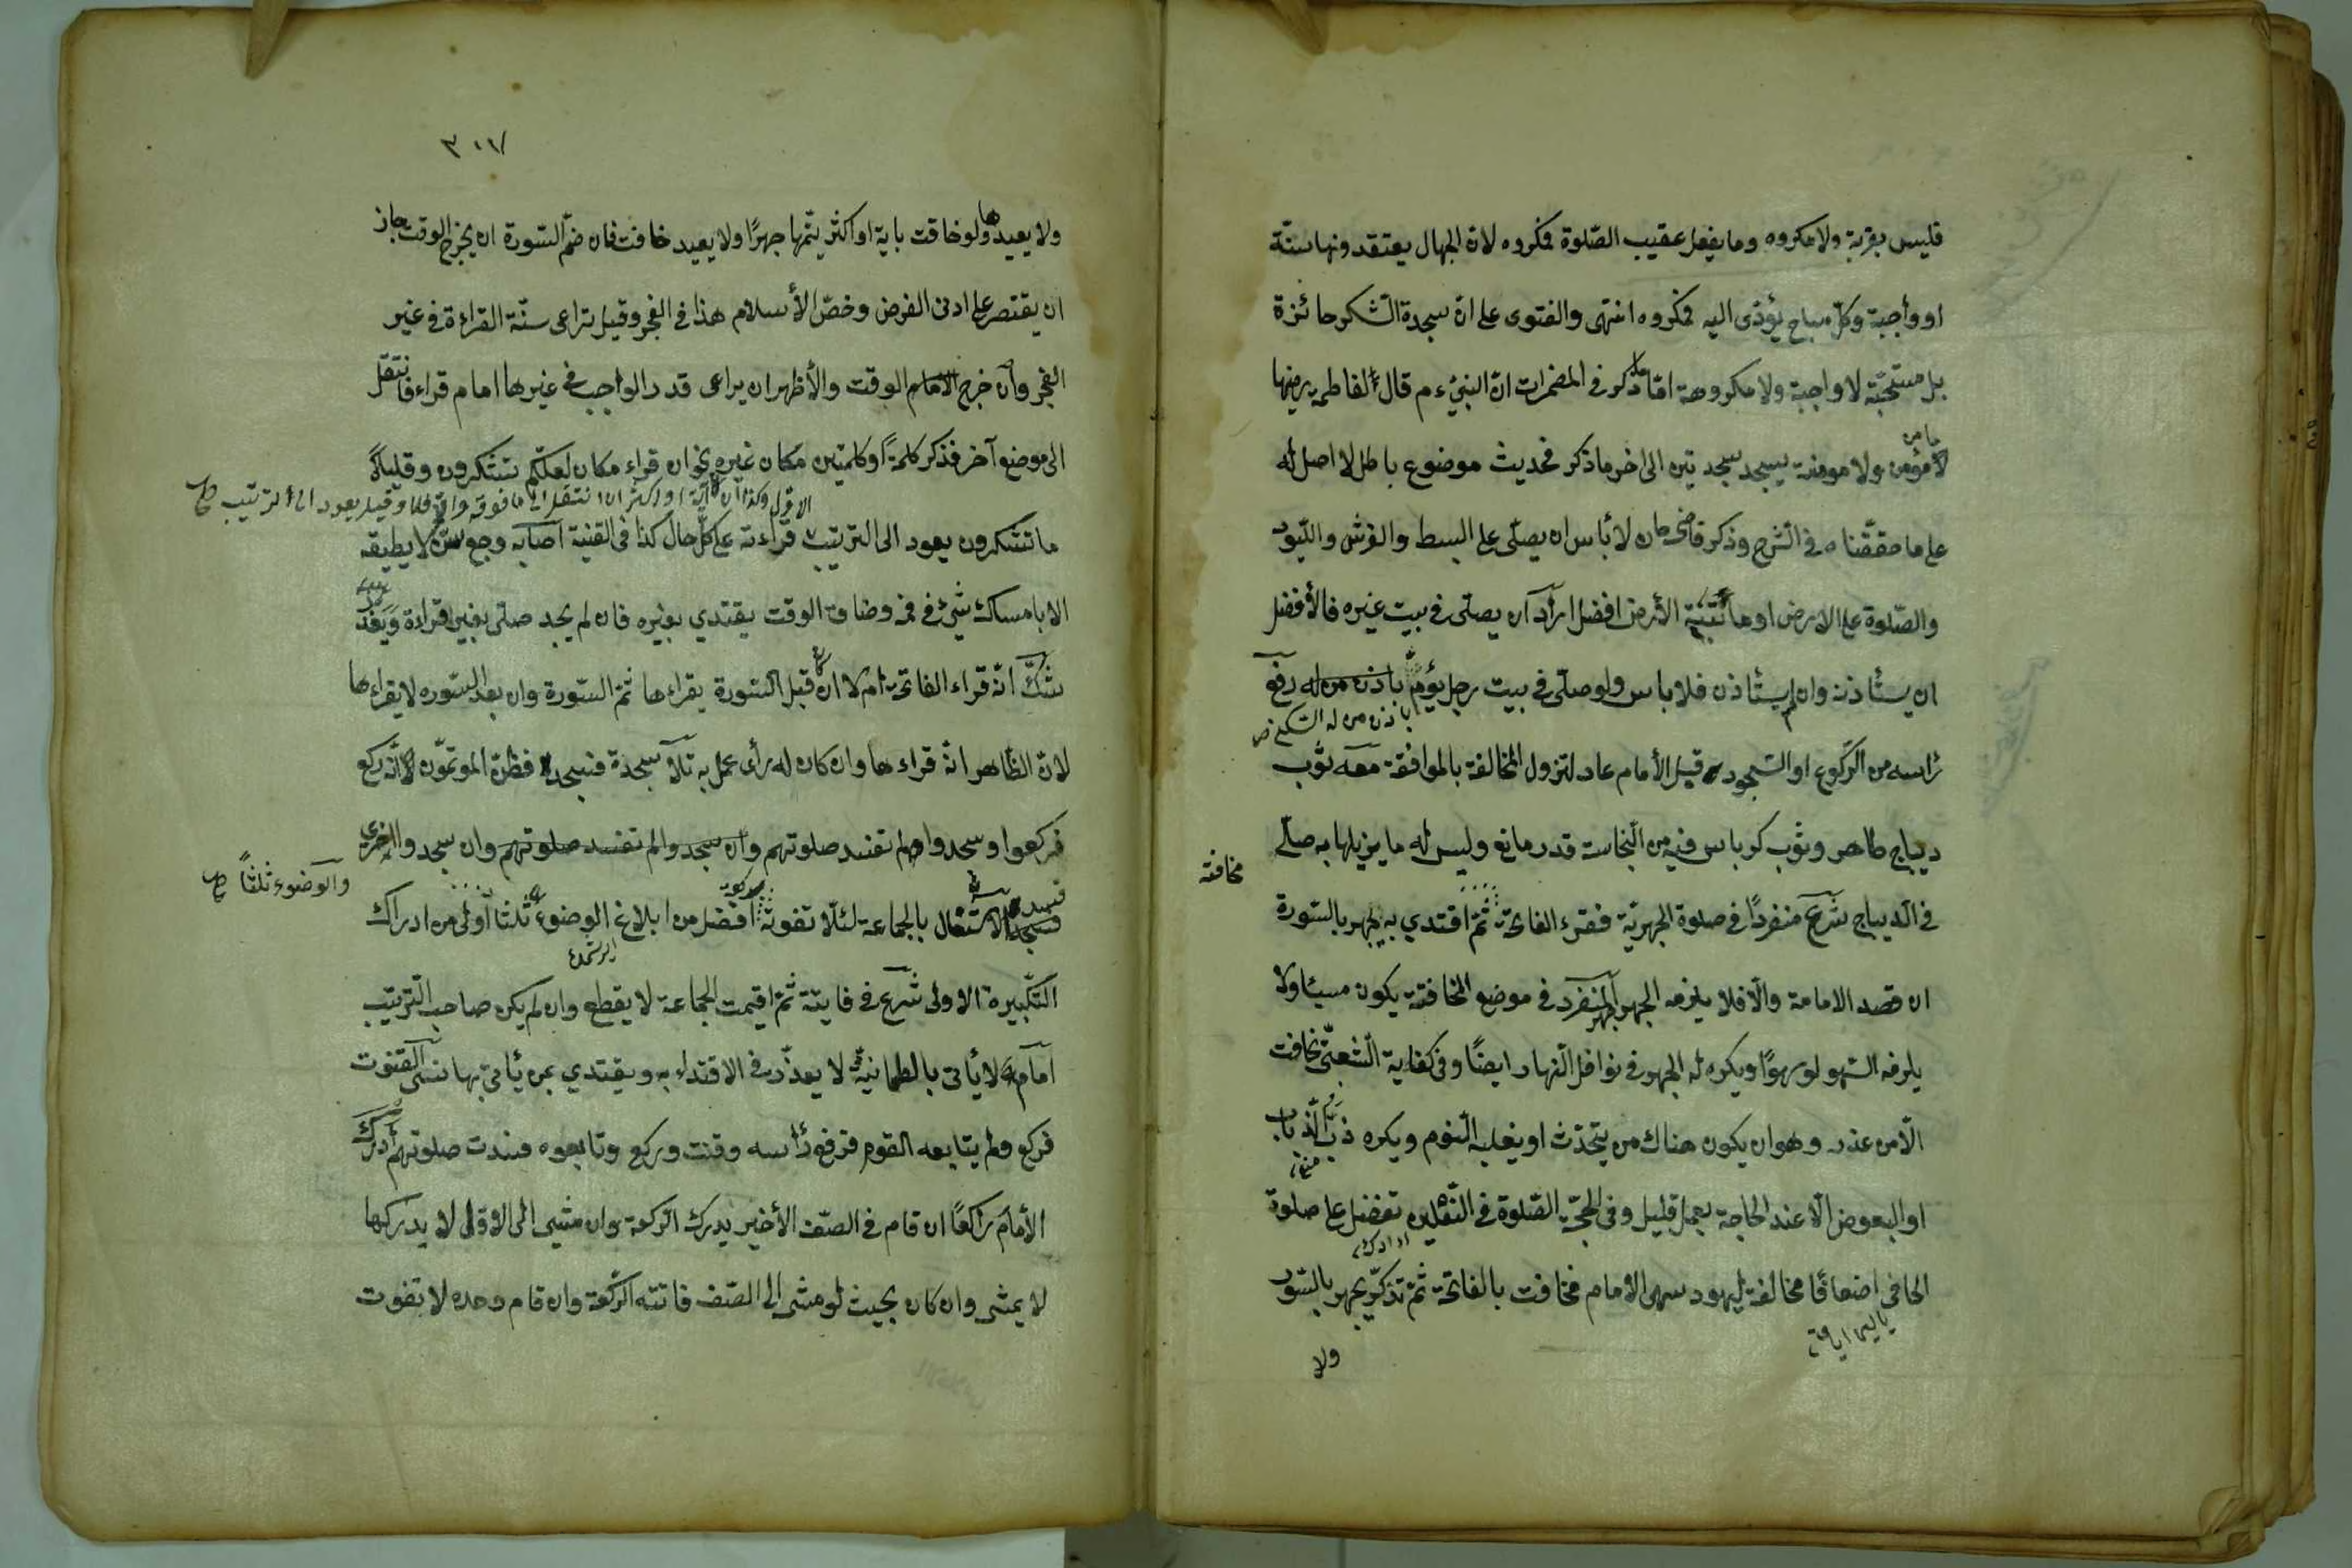 فليس بقربة ولا مكروه وما يفعل عقيب الصّلوة فمكروه لانّ الجهال يعتقدونها سنّة
او واجبة وكلّ مباح يؤدّى اليه فمكروه انتهى والفتوى على انّ سجدة الشّكر جائزة
بل مستحبّة لا واجبة ولا مكروهة امّا ما ذكر في المضمرات انّ النبيّ ءم قال لفاطمة رضيها
ما من
لا مؤمن ولا مومنة يسجد سجدتين الى اخر ما ذكر فحديث موضوع باطل لا اصل له
على ما حقّقناه في الشّرح وذكر قاضى خان لا بأس ان يصلّى على البسط والفرش واللّبود
والصّلوة على الارض او ما تنبته الأرض افضل اراد ان يصلى في بيت غيره فالأفضل
ان يستأذن وان لم يستأذن فلا باس ولو صلّى في بيت رجل يؤمّ باذن من له رفع
باذن من له السّكنى صح
رأسه من الرّكوع او السّجود قبل الأمام عاد لتزول المخالفة بالموافقة معه ثوب
ديباج طاهر وثوب كرباس فيه من النّجاسة قدر مانع وليس له ما يزيلها به صلّى
مخافتة
في الدّيباج شرع منفردًا في صلوة الجهريّة فقرء الفاتحة ثمّ اقتدي به يجهر بالسّورة
ان قصد الامامة والّا فلا يلزمه الجهر المنفرد في موضع المخافتة يكون مسيئا ولا
يلزمه السّهو لو سهوًا ويكره له الجهر في نوافل النّهار ايضًا وفي كفاية الشعبيّ يخافت
الّا من عذر وهو ان يكون هناك من يتحدّث او يغلبه النّوم ويكره ذبّ الذّباب
او البعوض الّا عند الحاجة بعمل قليل وفي الحجّة الصّلوة في النّعلين تفضل على صلوة
الحافى اضعافًا مخالفة لليهود سهى الامام فخافت بالفاتحة ثمّ تذكّر يجهر بالسّورة
ولا
٣٠٧
ولا يعيدها ولو خافت باية او اكثر يتمّها جهرًا ولا يعيد خافت فان ضمّ السّورة ان يخرج الوقت جاز
ان يقتصر على ادنى الفرض وخصّ الأسلام هذا في الفجر وقيل يراعى سنّة القراءة في غير
الفجر وان خرج الوقت والأظهر ان يراعى قدر الواجب في غيرها امام قراء فانتقل
الى موضع آخر فذكر كلمةً او كلمتين مكان غيره نحو ان قراء مكان لعلكم تشكرون وقليلاً
ما تشكرون يعود الى التّرتيب قراءته على كلّ حال كذا في القنية اصابه وجع سنّ لا يطيقه
الا بامساك شيئ في فمه وضاق الوقت يقتدي بغيره فان لم يجد صلّى بغير قراءة ويعذر
شكّ انّه قراء الفاتحة ام لا ان كان قبل السّورة يقراءها ثمّ السّورة وان بعد السّوره لا يقراءها
لانّ الظّاهر انّه قراءها وان كان له رأى عمل به تلا سجدة فسجد فظنّ الموتمّون انّه ركع
فركعوا وسجدوا لم تفسد صلوتهم وان سجدوا لم تفسد صلوتهم وان سجدوا اخرى
والوضوء ثلثًا صح
الاشتغال بالجماعة لئلّا تفوته افضل من ابلاغ الوضوء ثلثا اولى من ادراك
التّكبيرة الاولى شرع في فايتة ثمّ اقيمت الجماعة لا يقطع وان لم يكن صاحب التّرتيب
امامه لا يأتى بالطمانيّة لا يعذر في الاقتداء به ويقتدي بمن يأتى بها نسى القنوت
فركع ولم يتابعه القوم فرفع رأسه وقنت وركع وتابعوه فسدت صلوتهم أدرك
الأمام راكعًا ان قام في الصّف الأخير يدرك الرّكعة وان مشى الى الاوّل لا يدركها
لا يمشى وان كان بحيث لو مشى الى الصّف فاتته الرّكعة وان قام وحده لا تفوت